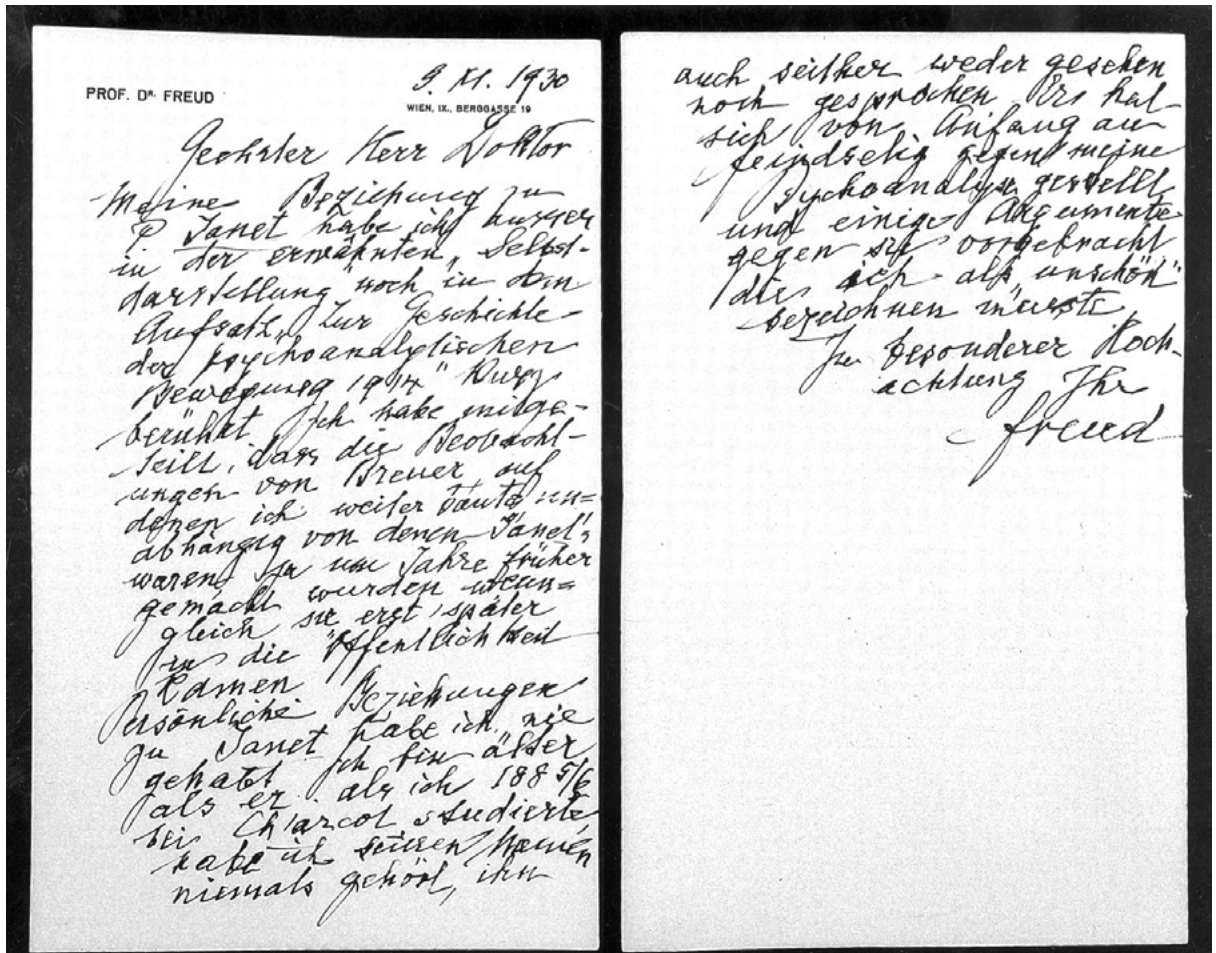 9. XI. 1930
PROF. DR. FREUD
WIEN, IX., BERGGASSE 19
Geehrter Herr Doktor
Meine Beziehung zu
P. Janet habe ich ausser
in der erwähnten „Selbst-
darstellung" noch in dem
Aufsatz „Zur Geschichte
der psychoanalytischen
Bewegung 1914" kurz
berührt. Ich habe mitge-
teilt, dass die Beobacht-
ungen von Breuer auf
denen ich weiter baute un=
abhängig von denen Janet's
waren, ja um Jahre früher
gemacht wurden wenn=
gleich sie erst später
in die Öffentlichkeit
kamen
Persönliche Beziehungen
zu Janet habe ich nie
gehabt. Ich bin älter
als er. als ich 1885/6
bei Charcot studierte,
habe ich seinen Namen
niemals gehört, ihn
auch seither weder gesehen
noch gesprochen. Er hat
sich von Anfang an
feindselig gegen meine
Psychoanalyse gestellt
und einige Argumente
gegen sie vorgebracht
die ich als „unschön"
bezeichnen musste
In besonderer Hoch-
achtung Ihr
Freud